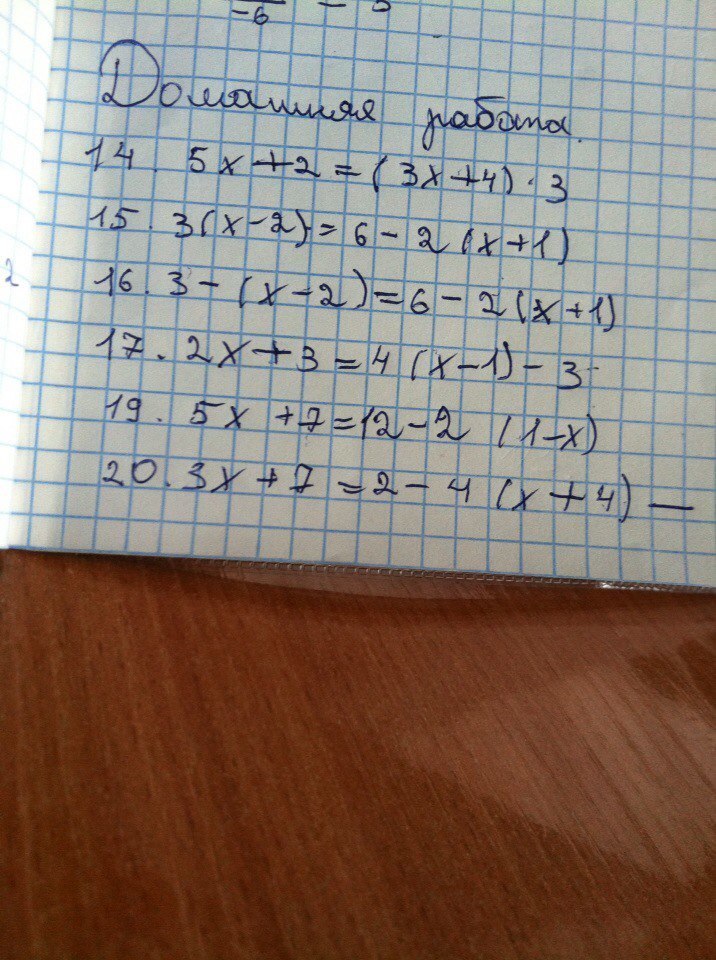 -6 - 3
Домашняя работа.
14. 5x+2=(3x+4)·3
15. 3(x-2)=6-2(x+1)
16. 3-(x-2)=6-2(x+1)
17. 2x+3=4(x-1)-3
19. 5x+7=12-2(1-x)
20. 3x+7=2-4(x+4)—
2